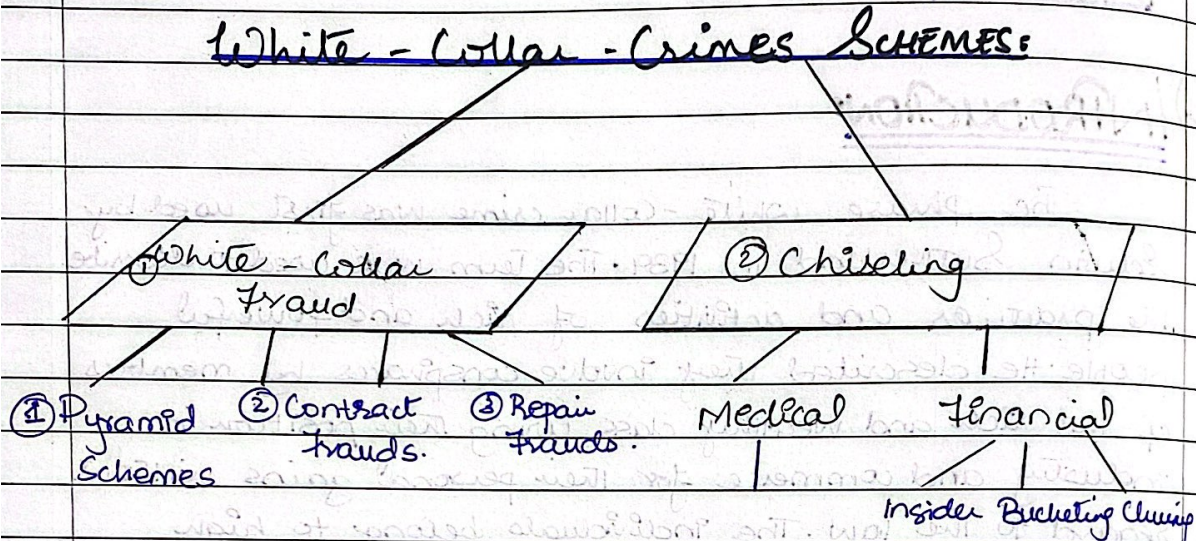 White - Collar - Crimes SCHEMES:
① White - Collar
Fraud
② Chiseling
① Pyramid
Schemes
② Contract
frauds.
③ Repair
frauds.
Medical
Financial
Insider Bucketing